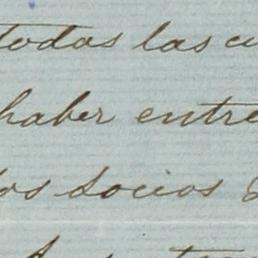 todas las
haber entre
los socios